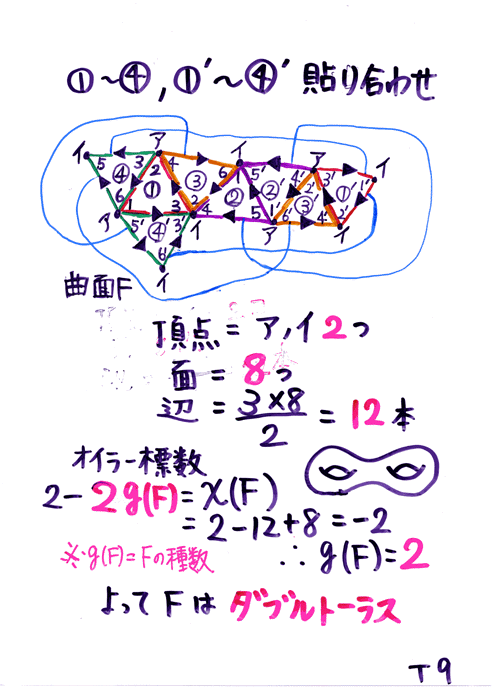 ①〜④,①′〜④′ 貼り合わせ
イ 5 3 ア 4 イ ア イ
④ 2 6 5 4′ 3′ 1′
6 ① ③ ② ② 2′ ①′
ア 1 3 2 4 5 1′ 6′ ③′ 4 2′
5′ ④′ 3′ イ ア イ
6′
イ
曲面F
頂点 = ア,イ 2つ
面 = 8つ
辺 = 3×8/2 = 12本
オイラー標数
2-2g(F)=χ(F)
=2-12+8=-2
※g(F)=Fの種数
∴ g(F)=2
よって F は ダブルトーラス
T9